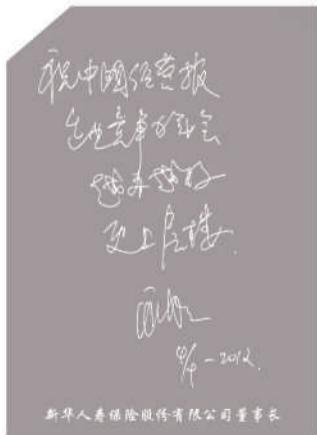 祝中国经营报
企业竞争力年会
越来越好
更上层楼.
4/9-2012.
新华人寿保险股份有限公司董事长